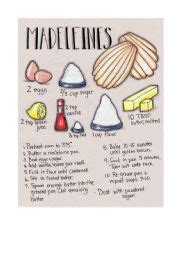 MADELEINES
2 eggs
2/3 cup sugar
2 tsp lemon juice
2 tsp vanilla
1 cup flour
10 TBSP
butter, melted
1. Preheat oven to 375°
2. Butter a madeleine pan.
3. Beat eggs + sugar
4. Add vanilla, lemon juice + salt
5. Fold in flour until combined
6. Stir in cooled butter.
7. Spoon enough batter into the
greased pan. Set remaining
batter
8. Bake 10-15 minutes
until golden brown.
9. Cool in pan 5 minutes
Turn out to rack.
10. Re-grease pan + repeat
steps.
Dust with powdered
sugar.